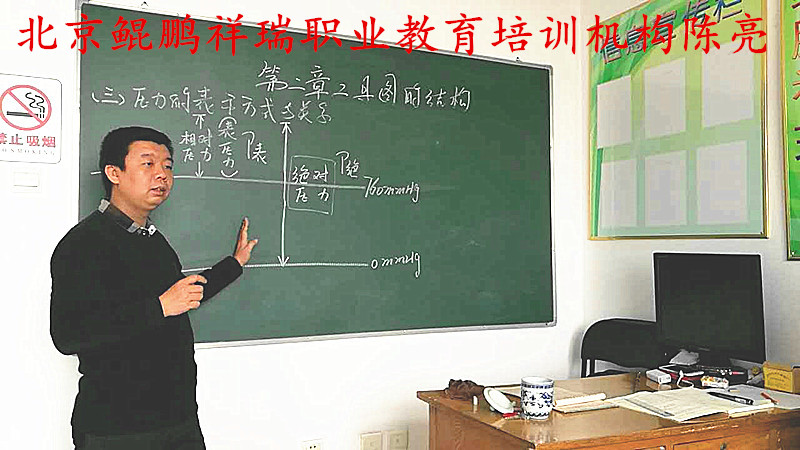 北京鲲鹏祥瑞职业教育培训机构陈亮
第二章工具图的结构
(三)压力的表示方式与关系
相对压力
表压力
P表
绝对压力
P绝
760mmHg
0mmHg
禁止吸烟
NO SMOKING
信息宣传栏